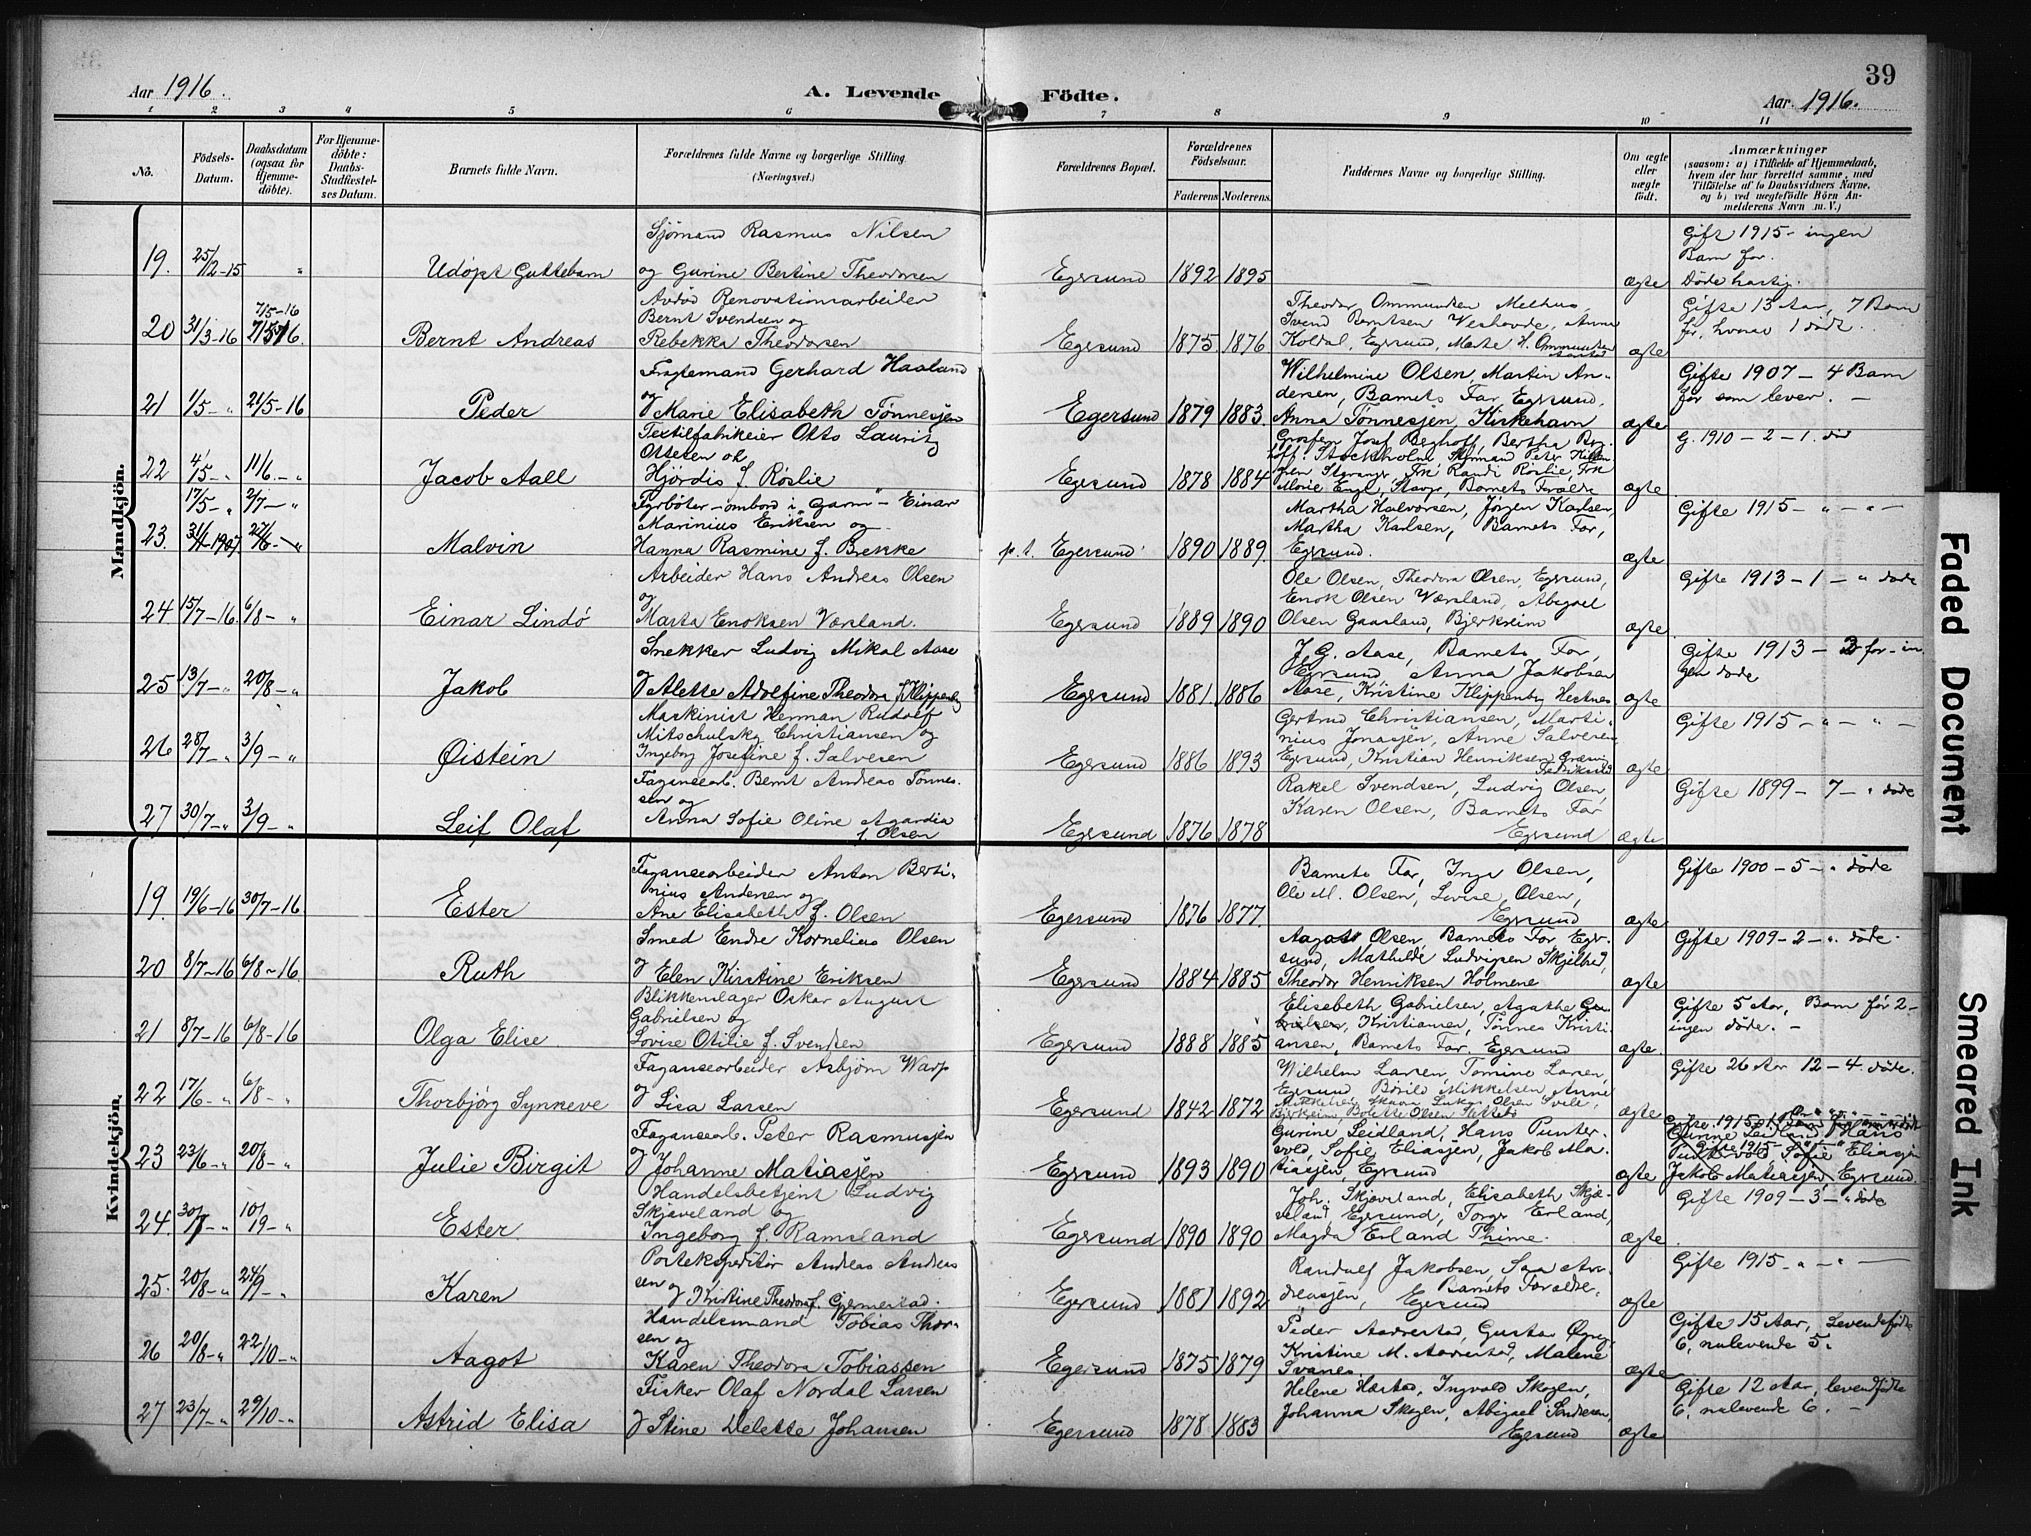 39
Aar 1916.
A. Levende Födte.
Aar 1916.
1 2 3 4 5 6 7 8 9 10 11
No.
Födsels-
Datum.
Daabsdatum
(ogsaa for
Hjemme-
döbte).
For Hjemme-
döbte:
Daabs-
Stadfæstel-
ses Datum.
Barnets fulde Navn.
Forældrenes fulde Navne og borgerlige Stilling.
(Næringsvei.)
Forældrenes Bopæl.
Forældrenes
Födselsaar.
Faderens
Moderens.
Faddernes Navne og borgerlige Stilling.
Om ægte
eller
uægte
födt.
Anmærkninger
(saasom: a) i Tilfælde af Hjemmedaab,
hvem der har forrettet samme, med
Tilföielse af to Daabsvidners Navne,
og b) ved uægtefödte Börn An-
melderens Navn m. V.)
Mandkjön.
19. 25/2-15 "
Udøpt Guttebarn
Sjømand Rasmus Nilsen
og Gurine Bertine Theodorsen
Egersund 1892 1895
—
ægte
Gift 1915 - ingen
Barn før.
Døde hastig.
20 31/3-16 7/5-16
Bernt Andreas
Avdød Renovationsarbeider
Bernt Svendsen og
Rebekka Theodorsen
Egersund 1875 1876
Theodor Ommundsen Melhus,
Svend Berntsen Veshovde, Anna
Koldal, Egersund, Marte H. Ommundsen
ægte
Gifte 13 Aar, 7 Barn
før, hvoraf 1 død.
21 1/5 - " 21/5-16
Peder
Fragtemand Gerhard Haaland
og
Marie Elisabeth Tønnesjen
Egersund 1879 1883.
Wilhelmine Olsen, Martin An-
dersen, Barnets Far, Egersund.
Anna Tønnesjen, Kirkehavn
ægte
Gifte 1907 - 4 Barn
før som lever. -
22 4/5 - " 11/6 - "
Jacob Aall
Textilfabrikeier Otto Lauritz
Ottesen ok
Hjørdis f. Røslie
Egersund 1878 1884
Grosfer. Josf Berghoff, Bertha
Stockholm, Skjømand Peter
Stavanger, Frk Randi Røslie, Frk
Marie Engl, Stavgr, Barnets Forældre
ægte
G. 1910 - 2 - 1. død
17/5 - " 2/7 - "
23. 31/1-1907 27/6 - "
Malvin
Fyrbøter - ombord i „Garm" - Einar
Marinius Eriksen og
Hanna Rasmine f. Brekke
p.t. Egersund 1890 1889.
Martha Halvorsen, Jørgen Karlsen,
Martha Karlsen, Barnets Far,
Egersund.
ægte
Gifte 1915 - " - " -
24 15/7-16 6/8 - "
Einar Lindó
Arbeider Hans Andreas Olsen
og
Marta Enoksen Værsland.
Egersund 1889 1890
Ole Olsen, Theodora Olsen, Egersund,
Enok Olsen Værsland, Abigael
Olsen Gaasland, Bjerkreim
ægte
Gifte 1913 - 1 - " døde
25 13/7 - " 20/8 - "
Jakob
Snekker Ludvig Mikal Aase
og Alette Adolfine Theodora f. Klippenby
Egersund 1881 1886
J. G. Aase, Barnets Far,
Egersund, Anna Jakobsen
Aase, Kristine Klippenby Hestnes
ægte
Gifte 1913 - 2 før - in
gen døde
26 28/7 - " 3/9 - "
Øistein
Maskinist Herman Rudolf
Mitschulsky Christiansen og
Ingeborg Josefine f. Salvesen
Egersund 1886 1893
Gertrud Christiansen, Marti-
nius Jonasjen, Anne Salvesen
Egersund, Kristian Henriksen
Fredrikstad
ægte
Gifte 1915 - " - " -
27 30/7 - " 3/9 - "
Leif Olaf
Fagansearb. Bernt Andreas Tønnes-
sen og
Anna Sofie Oline Agardia
f. Olsen
Egersund 1876 1878
Rakel Svendsen, Ludvig Olsen
Karen Olsen, Barnets Far
Egersund
ægte
Gifte 1899 - 7 - " døde
Kvindekjön.
19. 19/6-16 30/7-16
Ester
Fagansearbeider Anton Berti-
nius Andersen og
Ane Elisabeth f. Olsen
Egersund 1876 1877.
Barnets Far, Inga Olsen,
Ole M. Olsen, Lovise Olsen,
Egersund
ægte
Gifte 1900 - 5 - " døde
20 8/7-16 6/8-16
Ruth
Smed Endre Kornelius Olsen
og Elen Kirstine Eriksen
Egersund 1884 1885
Aagot Olsen, Barnets Far Eger-
sund, Mathilde Ludvigsen Skjelbred,
Theodor Henriksen Holmene
ægte
Gifte 1909 - 2 - " døde.
21 8/7-16 6/8-16
Olga Elise
Blikkenslager Oskar August
Gabrielsen og
Lovise Otilie f. Svendsen
Egersund 1888 1885
Elisabeth Gabrielsen, Agathe Ga-
brielsen, Kristiansen, Tønnes Kristi-
ansen, Barnets Far. Egersund
ægte.
Gifte 5 Aar, Barn før 2 -
ingen døde. -
22 17/6 - " 6/8 - "
Thorbjørg Synneve
Fagansearbeider Asbjørn Warp
og Lisa Larsen
Egersund 1842 1872
Wilhelm Larsen, Tomine Larsen,
Egersund Børild Mikkelsen, Anne
Mikkelsen Skaara, Lukas Olsen Svele,
Bjerkreim, Bolette Olsen Slettebø
ægte
Gifte 26 Aar 12 - 4 døde.
23 23/6 - " 20/8 - "
Julie Birgit
Fagansearb. Peter Rasmusjen
og Johanne Matiasjen
Egersund 1893 1890
Gurine Leidland, Hans Punter-
vold, Sofie Eliasjen, Jakob Ma-
tiasjen, Egersund
ægte
Gurine Leidland, Hans
Gifte 1915 - "
Puntervold, Sofie Eliasjen
Jakob Matiasjen, Egersund.
24. 30/7 - " 10/9 - "
Ester
Handelsbetjent Ludvig
Skjæveland og
Ingeborg f. Ramsland
Egersund 1890 1890
Joh. Skjæveland, Elisabeth Skjæ-
veland Egersund, Torger Erland,
Magda Erland Thime.
ægte
Gifte 1909 - 3 - " døde
25. 20/8 - " 24/9 - "
Karen
Portekspeditør Andreas Andreas
sen
og Kristine Theodora f. Gjermestad.
Egersund 1881 1892
Randulf Jakobsen, Sara An-
dreasjen, Barnets Forældre,
Egersund
ægte
Gifte 1915 - " - " -
26 20/8 - " 22/10 - "
Aagot
Handelsmand Tobias Thor-
sen og
Karen Theodora Tobiassen
Egersund 1875 1879
Peder Aadnestad, Gustav Øgrey
Kristine M. Aadnestad, Malene
Svanes
ægte
Gifte 15 Aar, Levendefødte
6, nulevende 5.
27 23/7 - " 29/10 - "
Astrid Elisa
Fisker Olaf Nordal Larsen
og Stine Delette Johansen
Egersund 1878 1883
Helene Hæstad, Ingvald Skogen,
Johanna Skogen, Abigael Andersen,
Egersund
ægte
Gifte 12 Aar, levendfødte
6, nulevende 6. -
Faded Document
Smeared Ink